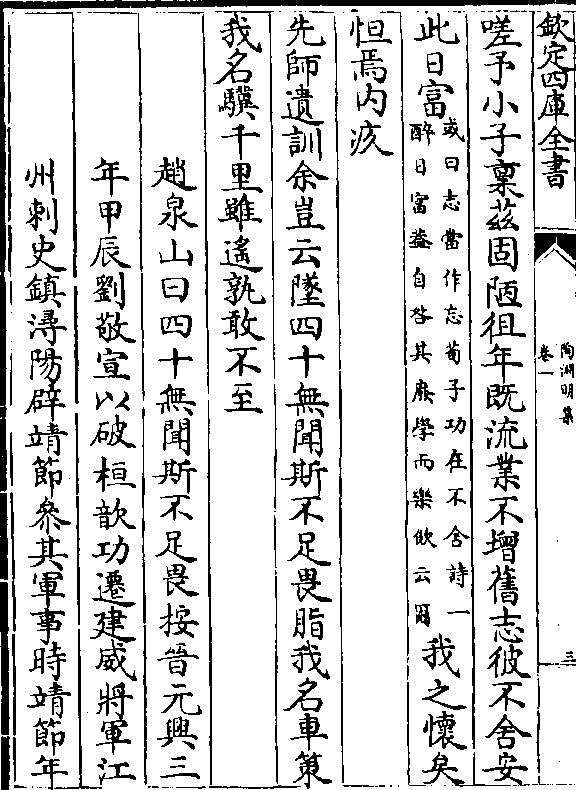 欽定四庫全書
陶淵明集
卷一
三
嗟予小子稟茲固陋徂年既流業不增舊志彼不舍安
此日富或曰志當作忘荀子功在不舍詩一醉日富葢自咎其廢學而樂飲云爾我之懷矣
怛焉内疚
先師遺訓余豈云墜四十無聞斯不足畏脂我名車策
我名驥千里雖遙孰敢不至
趙泉山曰四十無聞斯不足畏按晉元興三
年甲辰劉敬宣以破桓歆功遷建威將軍江
州刺史鎮潯陽辟靖節參其軍事時靖節年